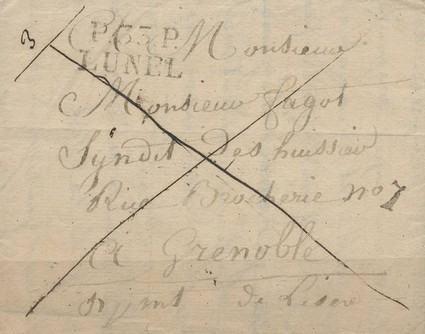 3
P. 33. P.
LUNEL
Monsieur
Monsieur fagot
Syndit des huissier
Rue Brocherie no 7
A Grenoble
de Lisere